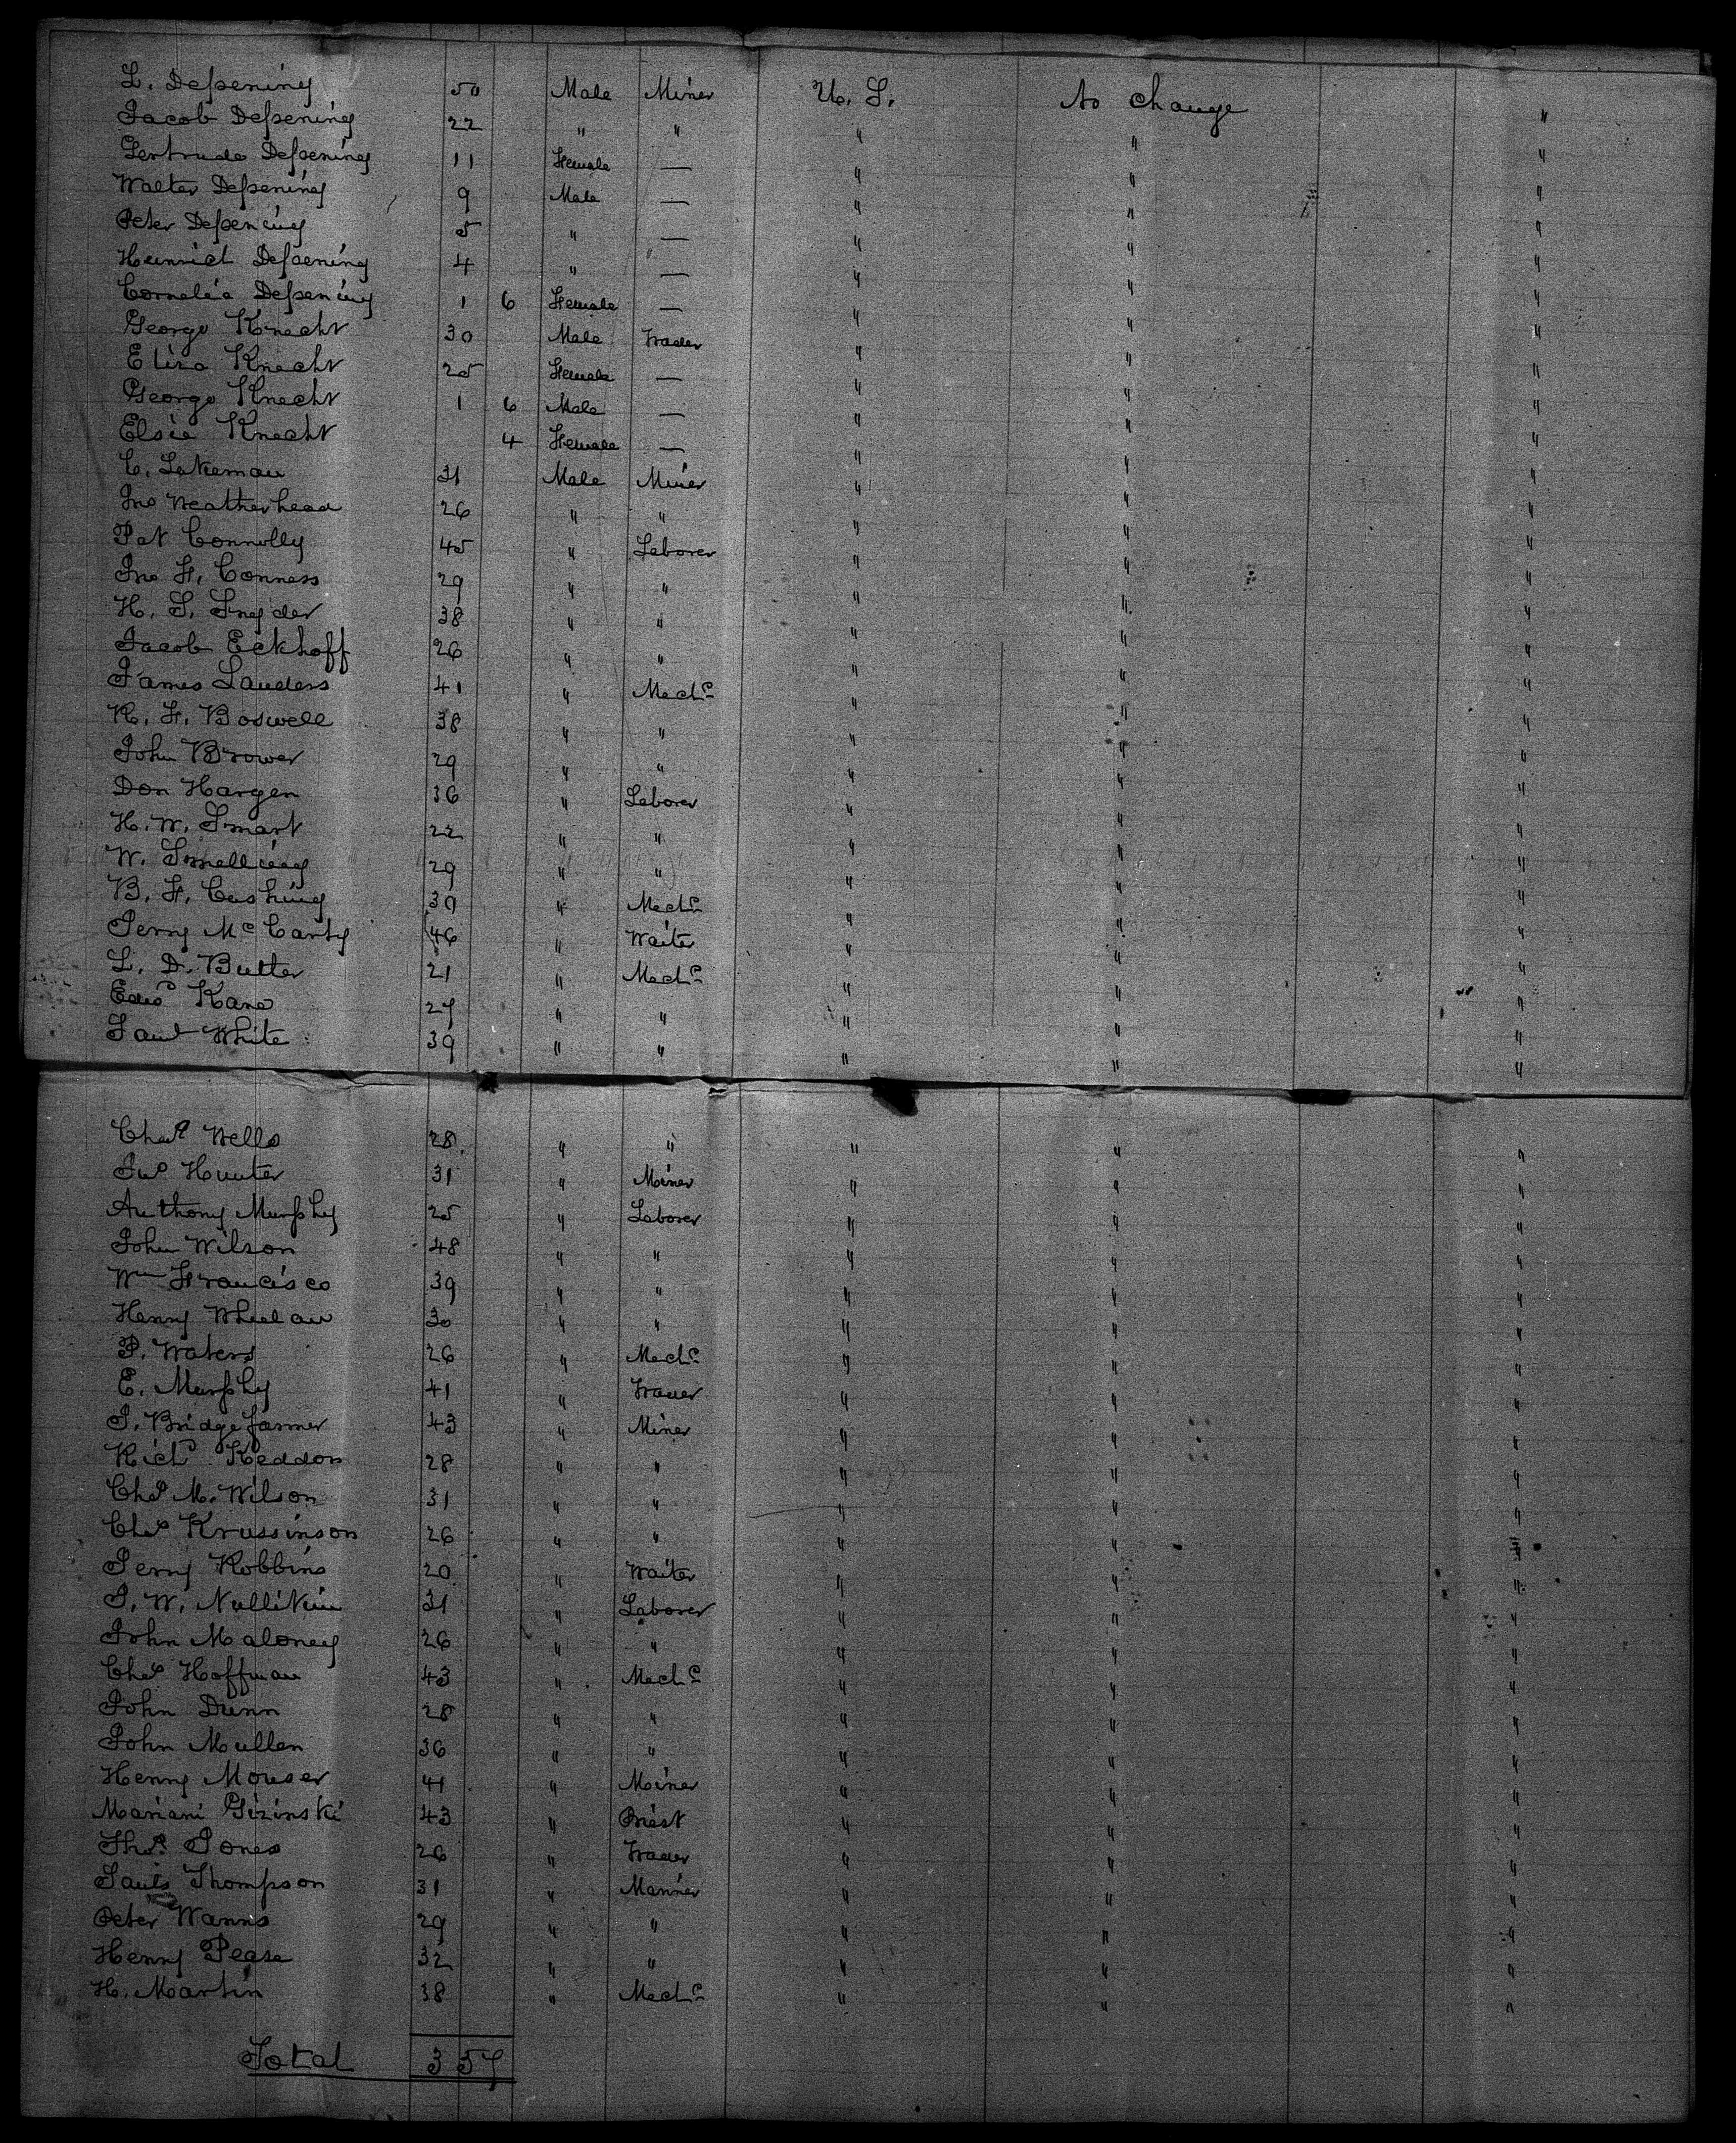 L. Depening 50 Male Miner U. S. to change "
Jacob Depening 22 " " " " "
Gertrude Depening 11 Female — " " "
Walter Depening 9 Male — " " "
Peter Depening 5 " — " " "
Heinrich Depening 4 " — " " "
Cornelia Depening 1 6 Female — " " "
George Knecht 30 Male Trader " " "
Eliza Knecht 25 Female — " " "
George Knecht 1 6 Male — " " "
Elsie Knecht 4 Female — " " "
C. Lakeman 31 Male Miner " " "
Jno Weatherhead 26 " " " " "
Pat Connolly 45 " Laborer " " "
Jno F. Conness 29 " " " " "
H. S. Snyder 38 " " " " "
Jacob Eckhoff 26 " " " " "
James Landers 41 " Mechc " " "
R. F. Boswell 38 " " " " "
John Brower 29 " " " " "
Don Hargen 36 " Laborer " " "
H. W. Smart 22 " " " " "
W. Smelling 29 " " " " "
B. F. Cushing 39 " Mechc " " "
Jerry McCarty 46 " Waiter " " "
L. D. Butter 21 " Mechc " " "
Edwd Kane 27 " " " " "
Saml White 39 " " " " "
Chas Wells 28 " " " " "
Jno Hunter 31 " Miner " " "
Anthony Murphy 25 " Laborer " " "
John Wilson 48 " " " " "
Wm Francisco 39 " " " " "
Henry Whelan 30 " " " " "
P. Waters 26 " Mechc " " "
E. Murphy 41 " Trader " " "
J. Bridgefarmer 43 " Miner " " "
Richd Keddon 28 " " " " "
Chas M. Wilson 31 " " " " "
Chas Krussinson 26 " " " " "
Jerry Robbins 20 " Waiter " " "
J. W. Nullikin 31 " Laborer " " "
John Maloney 26 " " " " "
Chas Hoffman 43 " Mechc " " "
John Dunn 28 " " " " "
John Mullen 36 " " " " "
Henry Mouser 41 " Miner " " "
Mariani Gizinski 43 " Priest " " "
Thos Jones 26 " Trader " " "
Thompson 31 " Mariner " " "
Peter Wanns 29 " " " " "
Henry Pease 32 " " " " "
H. Martin 38 " Mechc " " "
Total 357